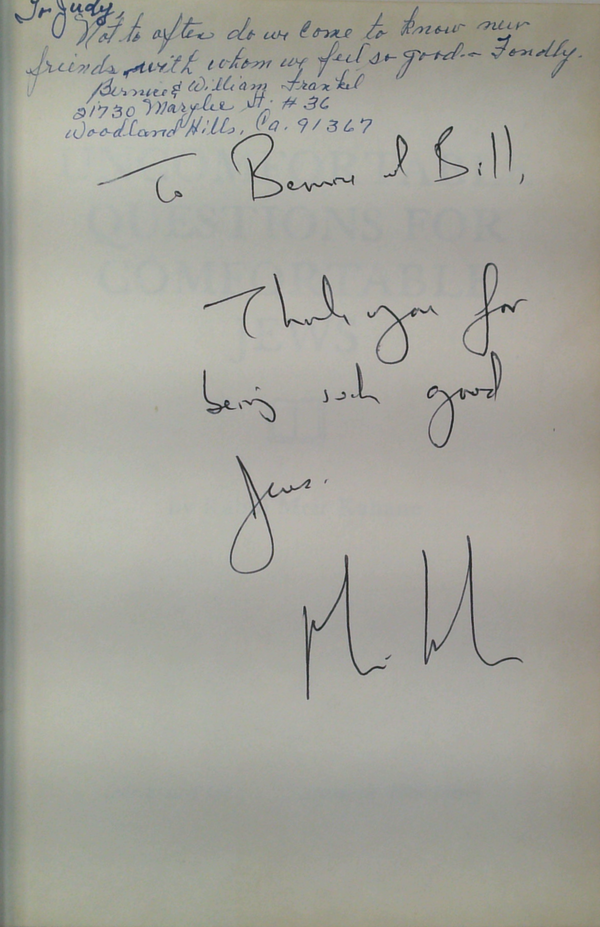 To Judy,
Not to often do we come to know new
friends with whom we feel so good - Fondly.
Bernice & William Frankel
21730 Marylee St. #36
Woodland Hills, Ca. 91367
To Bernice and Bill,
Thank you for
being such good
Jews.
UNCOMFORTABLE
QUESTIONS FOR
COMFORTABLE
JEWS
by Rabbi Meir Kahane